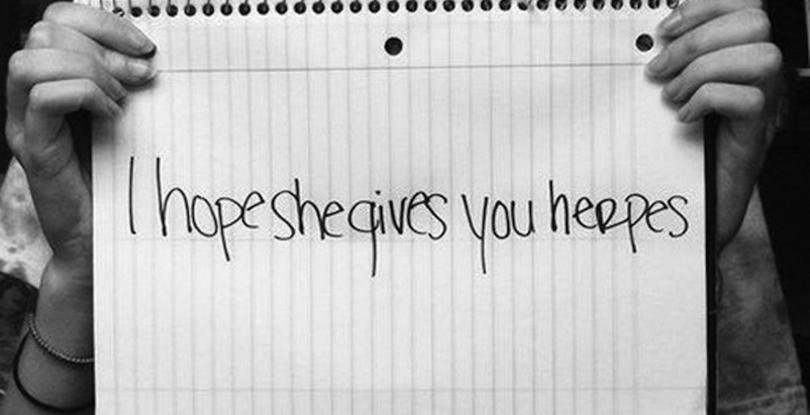 I hope she gives you herpes